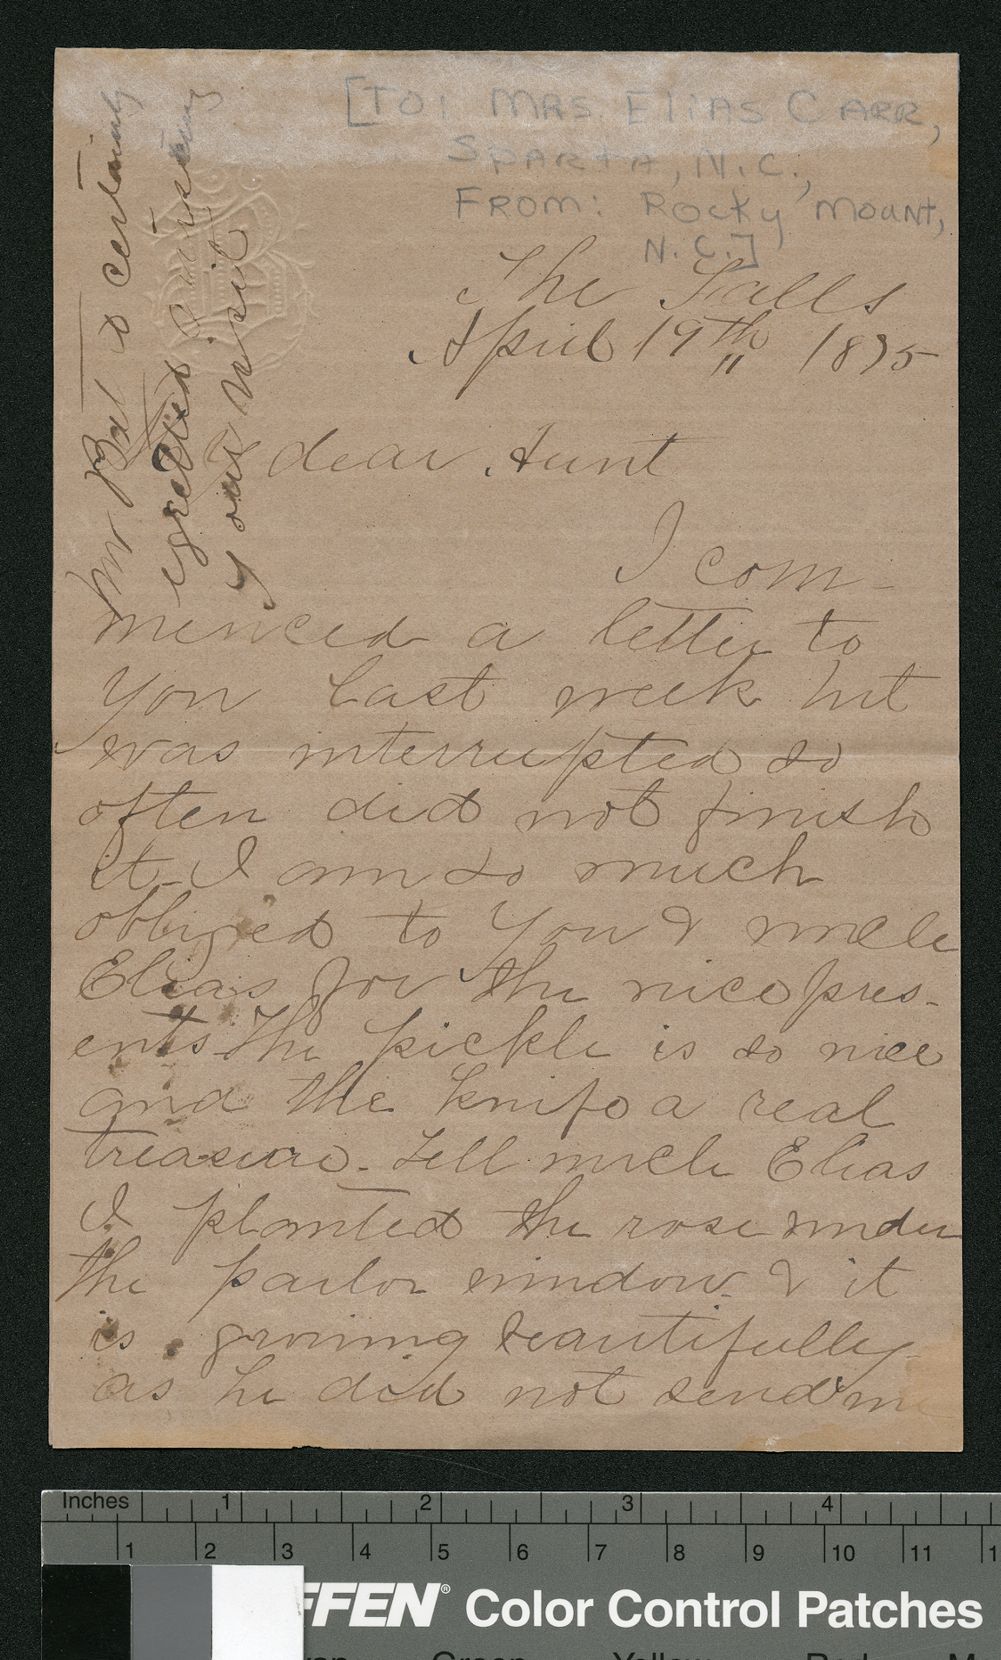 [TO: MRS. ELIAS CARR,
SPARTA, N.C.,
FROM: ROCKY MOUNT,
N.C.]
The Falls
April 19th 1875
dear Aunt
I com-
menced a letter to
you last week but
was interrupted so
often did not finish
it - I am so much
obliged to you & uncle
Elias for the nice pres-
ents The pickle is so nice
and the knife a real
treasure. Tell uncle Elias
I planted the rose under
the parlor window & it
is growing beautifully
as he did not send me
Mr Bat is certainly
your visit
Inches 1 2 3 4
1 2 3 4 5 6 7 8 9 10 11
FFEN® Color Control Patches